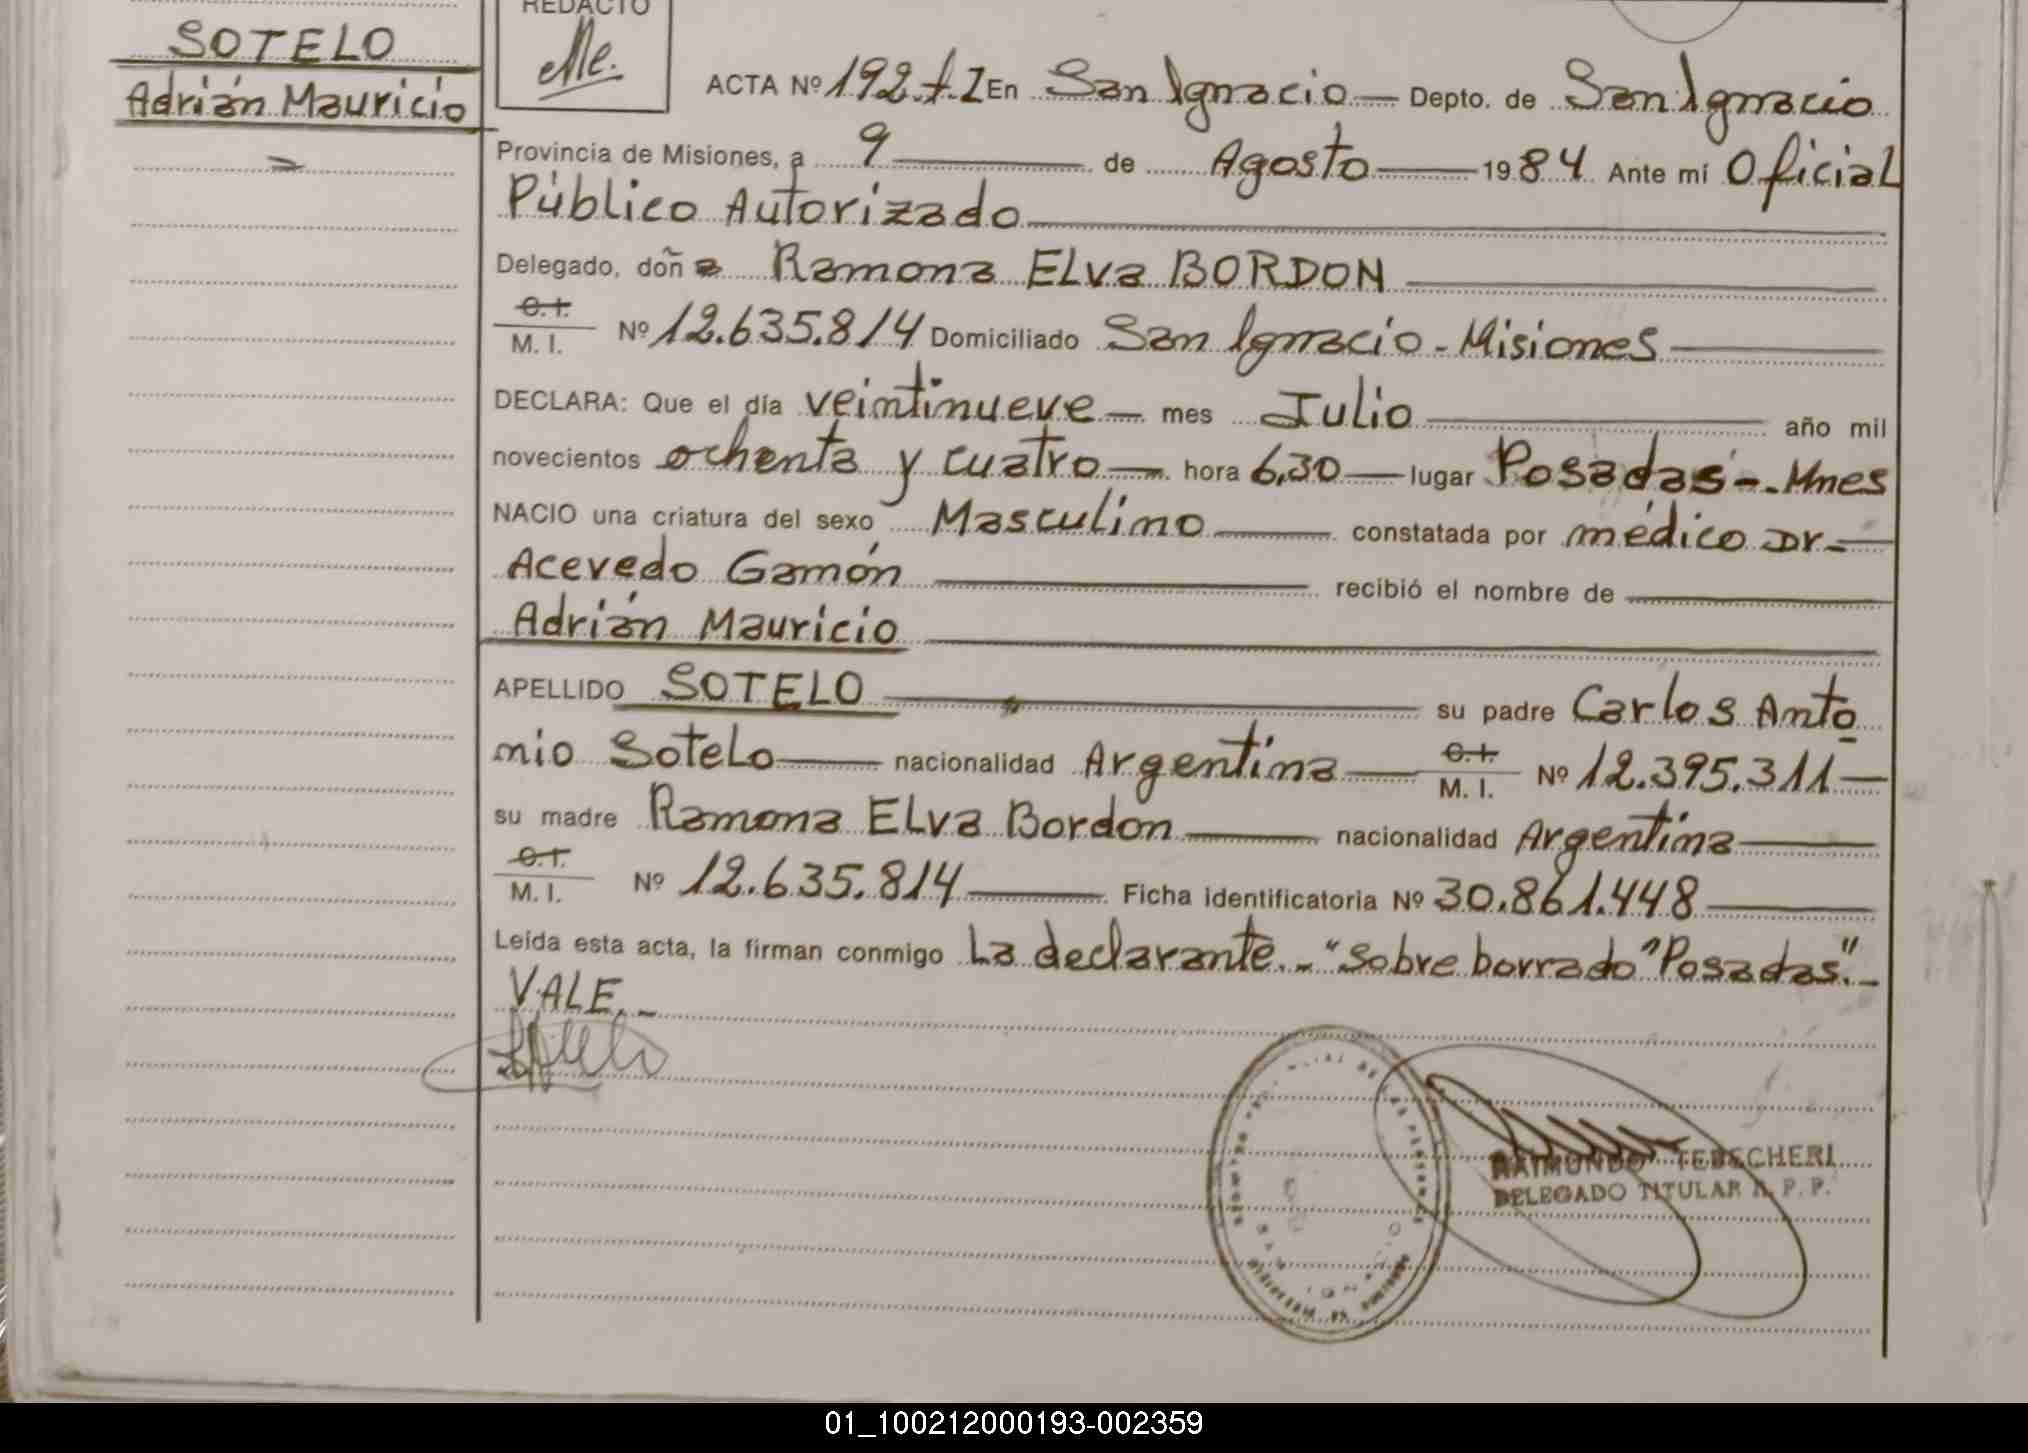 SOTELO
Adrián Mauricio
REDACTO
ACTA Nº 192.t.I En San Ignacio Depto. de San Ignacio
Provincia de Misiones, a 9 de Agosto 1984 Ante mi Oficial
Público Autorizado
Delegado, doña Ramona ELva BORDON
C.I.
M. I. Nº 12.635.814 Domiciliado San Ignacio - Misiones
DECLARA: Que el día veintinueve mes Julio año mil
novecientos ochenta y cuatro hora 6,30 lugar Posadas - Mnes
NACIO una criatura del sexo Masculino constatada por médico Dr
Acevedo Gamón recibió el nombre de
Adrián Mauricio
APELLIDO SOTELO su padre Carlos Anto
nio Sotelo nacionalidad Argentina C.I. M. I. Nº 12.395.311
su madre Ramona ELva Bordon nacionalidad Argentina
C.I.
M. I. Nº 12.635.814 Ficha identificatoria Nº 30.861.448
Leída esta acta, la firman conmigo La declarante.- "Sobre borrado "Posadas".-
VALE.-
RAIMUNDO TEDECHERI
DELEGADO TITULAR R. P. P.
01_100212000193-002359